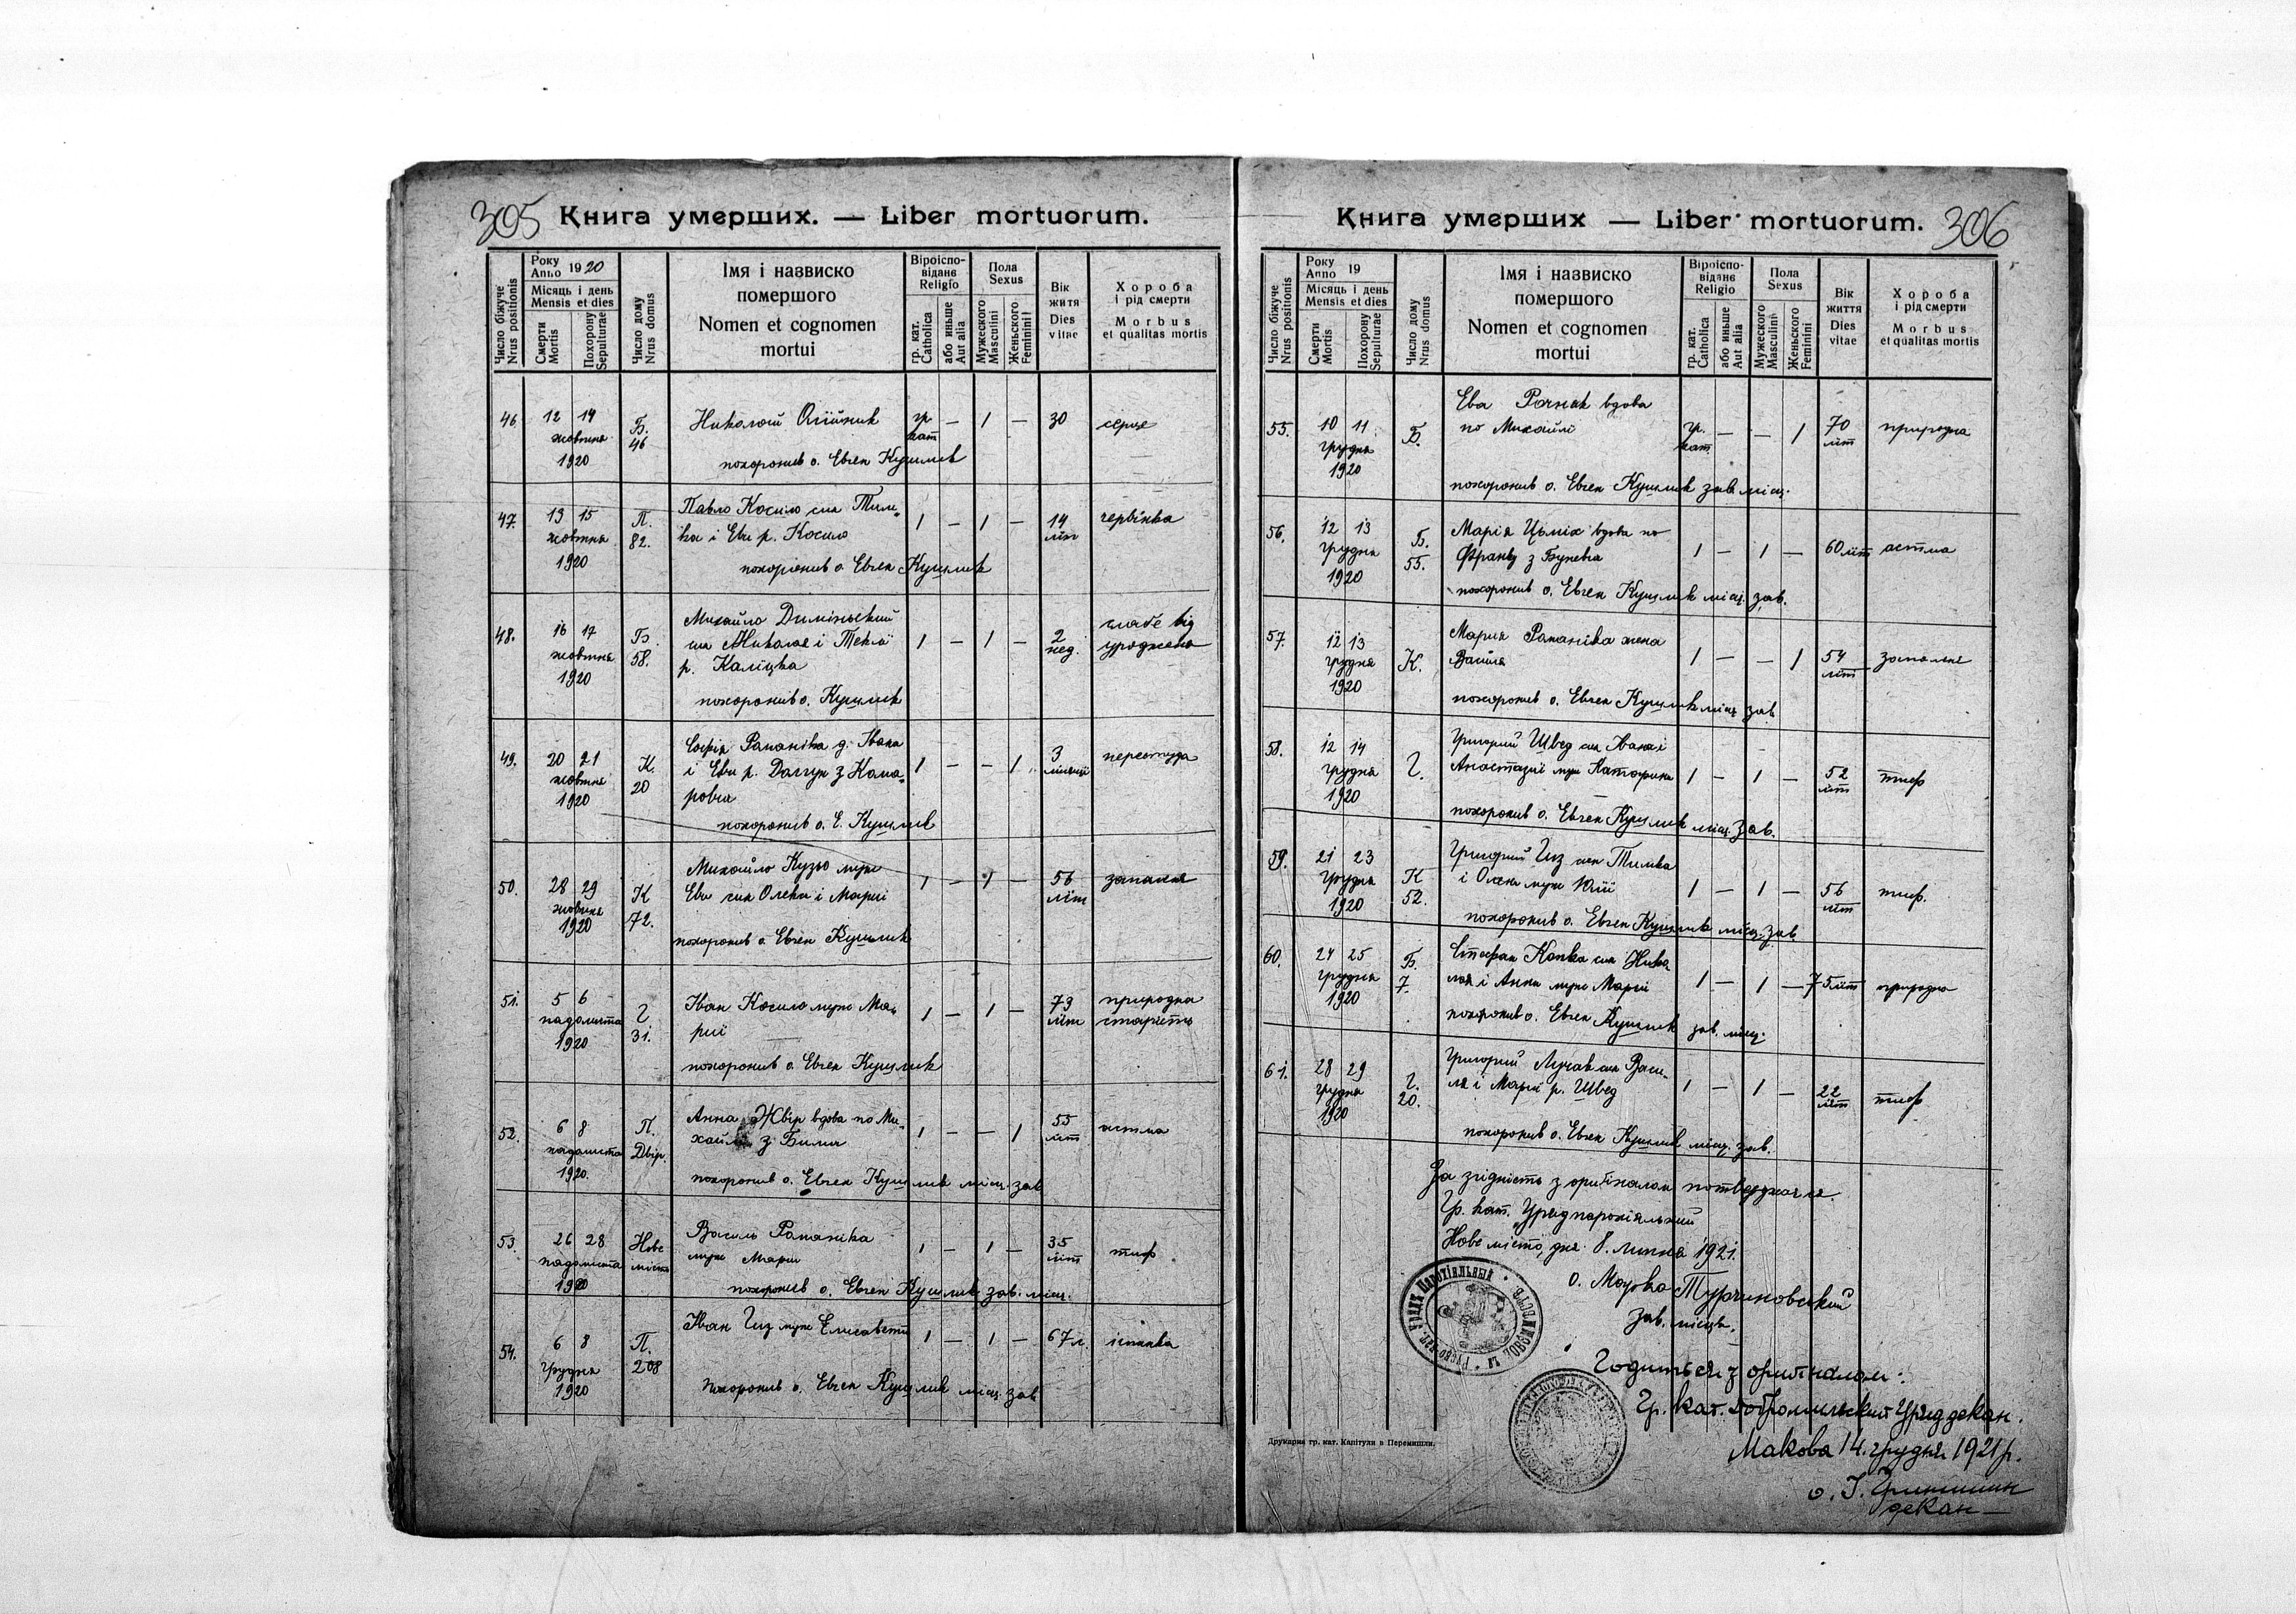 305
Книга умерших. — Liber mortuorum.
Число біжуче
Nrus positionis
Року
Anno 1920
Місяць і день
Mensis et dies
Смерти
Mortis
Похорону
Sepulturae
Число дому
Nrus domus
Імя і назвиско
помершого
Nomen et cognomen
mortui
Віроіспо-
відане
Religio
гр. кат.
Catholica
або иньше
Aut alia
Пола
Sexus
Мужеского
Masculini
Женьского
Feminini
Вік
житя
Dies
vitae
Хороба
і рід смерти
Morbus
et qualitas mortis
46. 12 14 Б. Николай Олійник гр. — 1 — 30 серце
жовтня 46 кат
1920 похоронив о. Евген Кушлик
47. 13 15 П. Павло Косило син Тим-
жовтня 82. ка і Еви р. Косило 1 — 1 — 14 літ червінка
1920 похоронив о. Евген Кушлик
48. 16 17 Б. Михайло
жовтня 58. син Николая і Теклї 1 — 1 — 2 нед. слабе від уродженя
1920 р. Каліцка
похоронив о. Кушлик
49. 20 21 К. Софія Романіка д. Івана
жовтня 20 і Еви р. з Кома- 1 — — 1 3 місяці перестуда
1920 рович
похоронив о. Е. Кушлик
50. 28 29 К Михайло Кузьо муж
жовтня 72. Еви син Олекси і Марії 1 — 1 — 56 літ запаленя
1920
похоронив о. Евген Кушлик
51. 5 6 Г Іван Косило муж Ма-
падолиста 31. рії 1 — 1 — 79 літ природна старість
1920
похоронив о. Евген Кушлик
52. 6 8 П. Анна Жвір вдова по Ми-
падолиста Двір. хайлі з Билич 1 — — 1 55 літ астма
1920.
похоронив о. Евген Кушлик місц. зав
53. 26 28 Нове Василь Романіка
падолиста місто муж Марії 1 — 1 — 35 літ тиф.
1920
похоронив о. Евген Кушлик зав. місц.
54. 6 8 П. Іван Гиз муж Елисавети 1 — 1 — 67 л.
Грудня 208
1920
похоронив о. Евген Кушлик місц. зав
306
Книга умерших — Liber mortuorum.
Число біжуче
Nrus positionis
Року
Anno 19
Місяць і день
Mensis et dies
Смерти
Mortis
Похорону
Sepulturae
Число дому
Nrus domus
Імя і назвиско
помершого
Nomen et cognomen
mortui
Віроіспо-
відане
Religio
гр. кат.
Catholica
або иньше
Aut alia
Пола
Sexus
Мужеского
Masculini
Женьского
Feminini
Вік
житя
Dies
vitae
Хороба
і рід смерти
Morbus
et qualitas mortis
55. 10 11 Б. Ева вдова
грудня по Михайлі гр. кат. — — 1 70 літ природна
1920
похоронив о. Евген Кушлик зав. місц.
56. 12 13 Б. Марія Цьміх вдова по
грудня 55. Франц з 1 — 1 — 60 літ астма
1920
похоронив о. Евген Кушлик місц. зав.
57. 12 13 К. Мария Романіка жена
грудня Василя 1 — — 1 54 літ запаленє
1920
похоронив о. Евген Кушлик місц зав
58. 12 14 Г. Григорий Швед син Івана і
грудня Анастазиї муж Катарини 1 — 1 — 52 літ тиф
1920
похоронив о. Евген Кушлик місц. зав.
59. 21 23 К Григорий Гиз син Тимка
грудня 52. і Олени муж Юлії 1 — 1 — 56 літ тиф.
1920
похоронив о. Евген Кушлик місц. зав
60. 24 25 Б. Стефан Копка син Нико-
грудня 7. лая і Анни муж Марії 1 — 1 — 75 літ природна
1920
похоронив о. Евген Кушлик зав. місц.
61. 28 29 Г. Григорий Лучак син Васи-
грудня 20. ля і Марії р. Швед 1 — 1 — 22 літ тиф
1920
похоронив о. Евген Кушлик місц. зав.
За згідність з оригіналом потверджаєся.
Гр. кат. Уряд парохіяльний
Нове місто, дня 8. липня 1921.
о. Турчиновский
зав. місця.
Годиться з оригіналом:
Гр. кат. Добромильский Уряд декан.
Макова 14. грудня 1921 р.
декан
Друкарня гр. кат. Капітули в Перемишли.